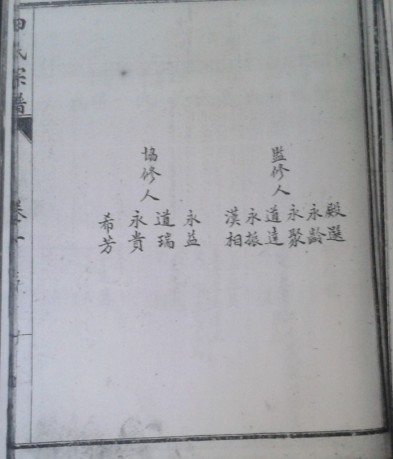 監修人
殿選
永齡
永聚
道遠
永振
漢相
協修人
永益
道瑞
永貴
希芳
田氏宗譜